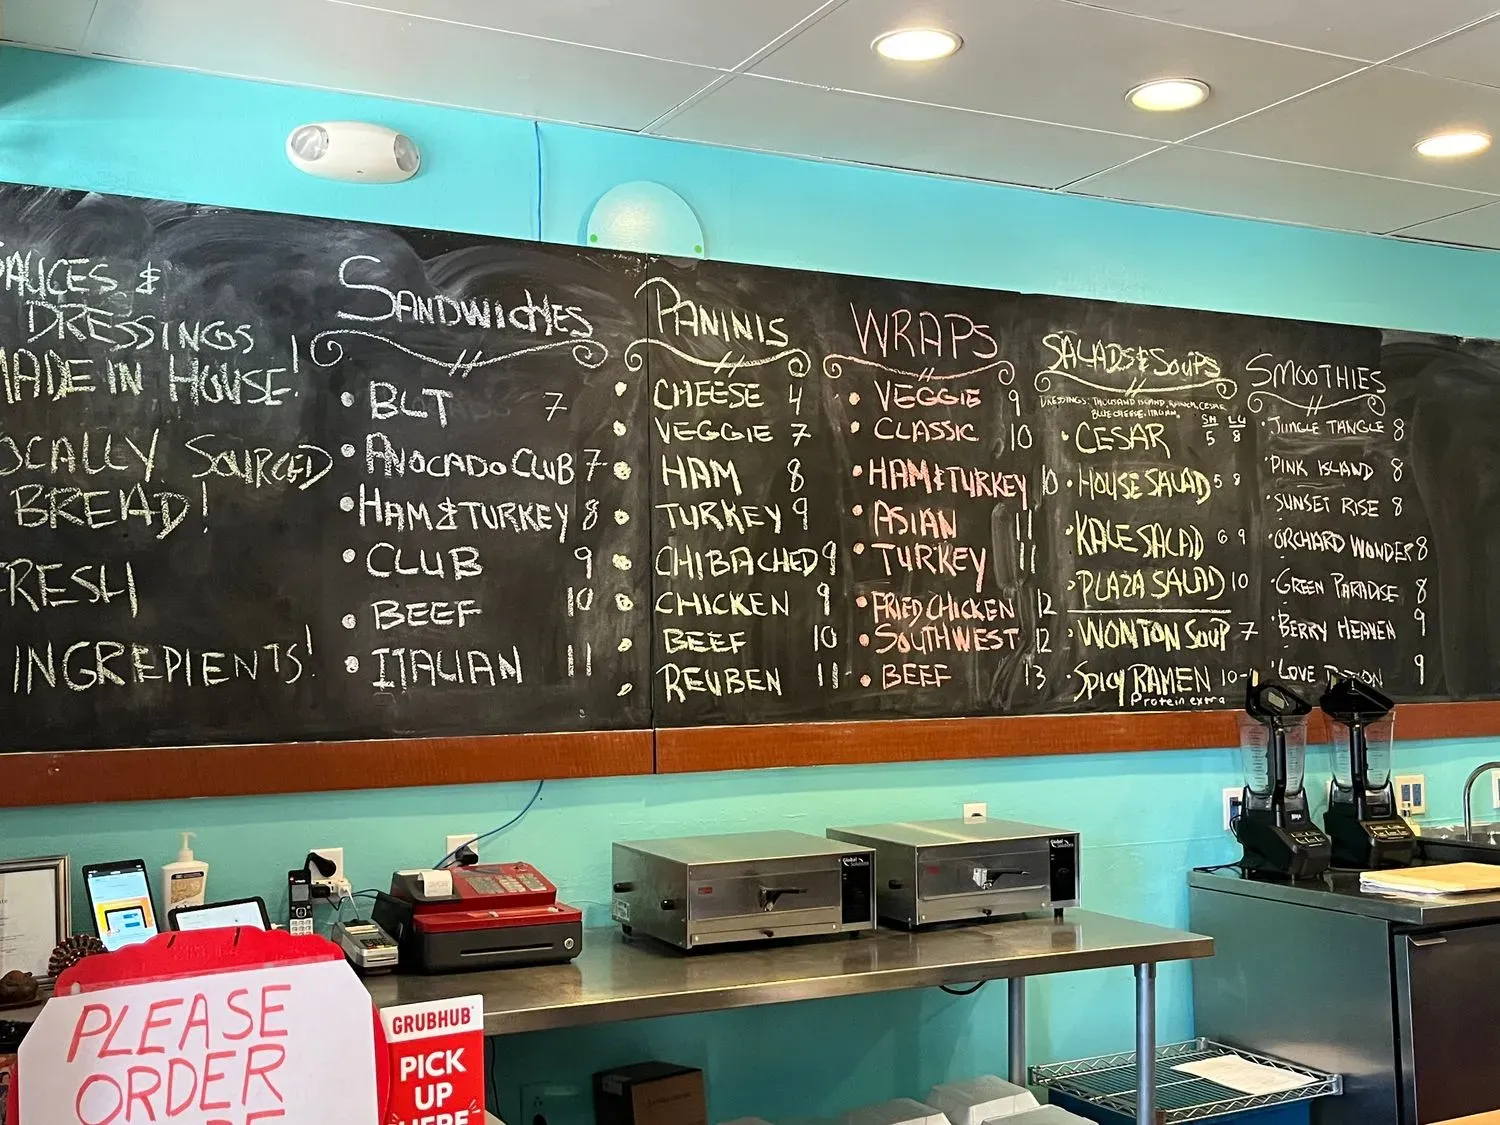 SAUCES &
DRESSINGS
MADE IN HOUSE!
LOCALLY SOURCED
BREAD!
FRESH
INGREDIENTS!
SANDWICHES
• BLT 7
• AVOCADO CLUB 7
• HAM & TURKEY 8
• CLUB 9
• BEEF 10
• ITALIAN 11
PANINIS
• CHEESE 4
• VEGGIE 7
• HAM 8
• TURKEY 9
• CHIBACHED 9
• CHICKEN 9
• BEEF 10
• REUBEN 11
WRAPS
• VEGGIE 9
• CLASSIC 10
• HAM & TURKEY 10
• ASIAN 11
• TURKEY 11
• FRIED CHICKEN 12
• SOUTHWEST 12
• BEEF 13
SALADS & SOUPS
DRESSINGS: THOUSAND ISLAND, RANCH, CESAR
BLUE CHEESE, ITALIAN,
SM LG
• CESAR 5 8
• HOUSE SALAD 5 8
• KALE SALAD 6 9
• PLAZA SALAD 10
• WONTON SOUP 7
• SPICY RAMEN 10-
Protein extra
SMOOTHIES
• JUNGLE TANGLE 8
• PINK ISLAND 8
• SUNSET RISE 8
• ORCHARD WONDER 8
• GREEN PARADISE 8
• BERRY HEAVEN 9
• LOVE 9
PLEASE
ORDER
GRUBHUB
PICK
UP
HERE